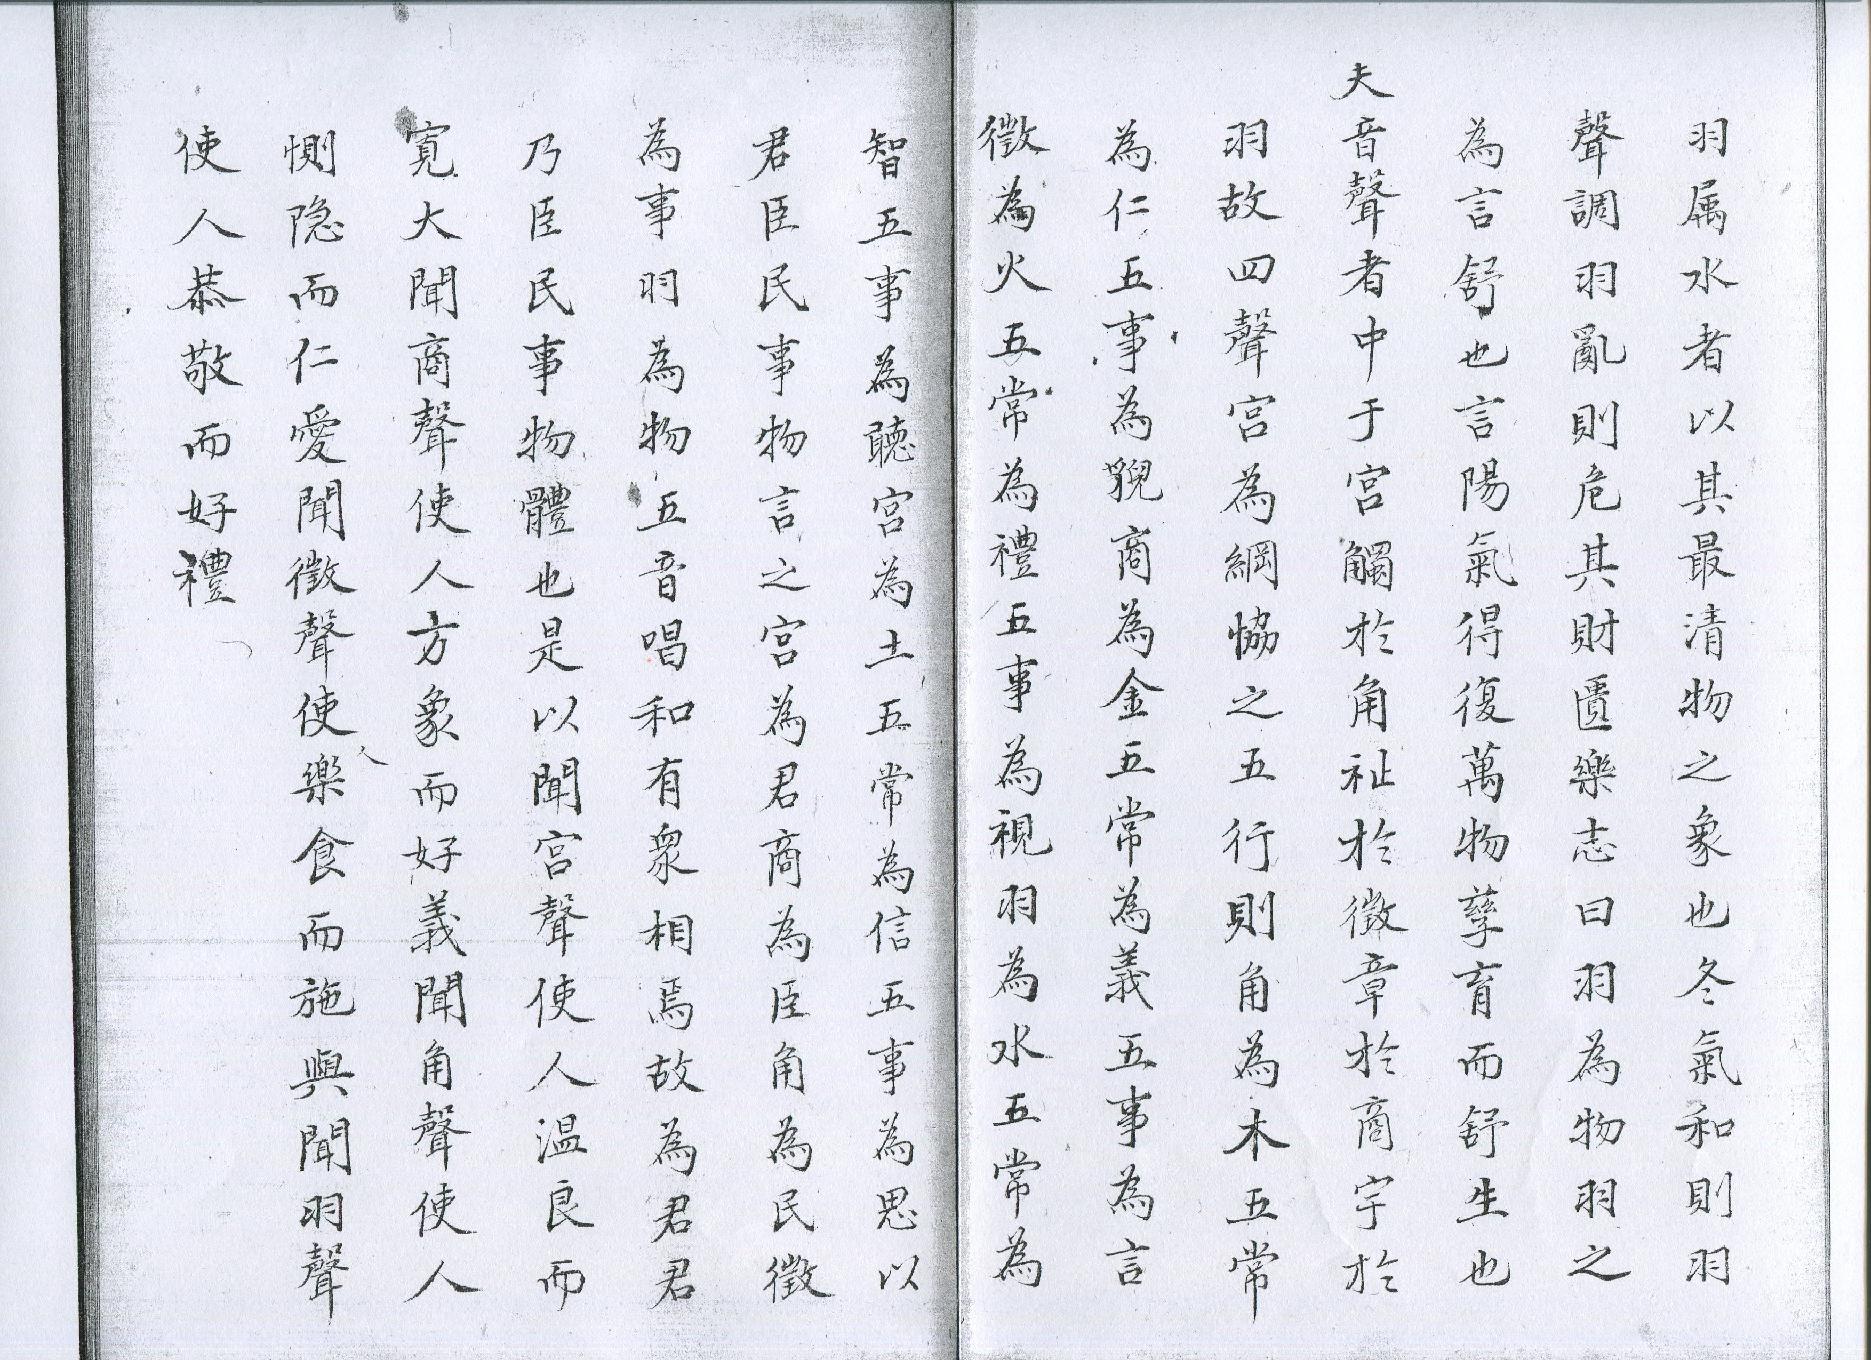 羽属水者以其最清物之象也冬氣和則羽
聲調羽亂則危其財匱樂志曰羽為物羽之
為言舒也言陽氣得復萬物孳育而舒生也
夫音聲者中于宮觸於角祉於徵章於商宇於
羽故四聲宮為綱恊之五行則角為木五常
為仁五事為貌商為金五常為義五事為言
徵為火五常為禮五事為視羽為水五常為
智五事為聽宮為土五常為信五事為思以
君臣民事物言之宮為君商為臣角為民徵
為事羽為物五音唱和有衆相焉故為君君
乃臣民事物體也是以聞宮聲使人温良而
寬大聞商聲使人方象而好義聞角聲使人
惻隐而仁愛聞徵聲使人樂食而施與聞羽聲
使人恭敬而好禮